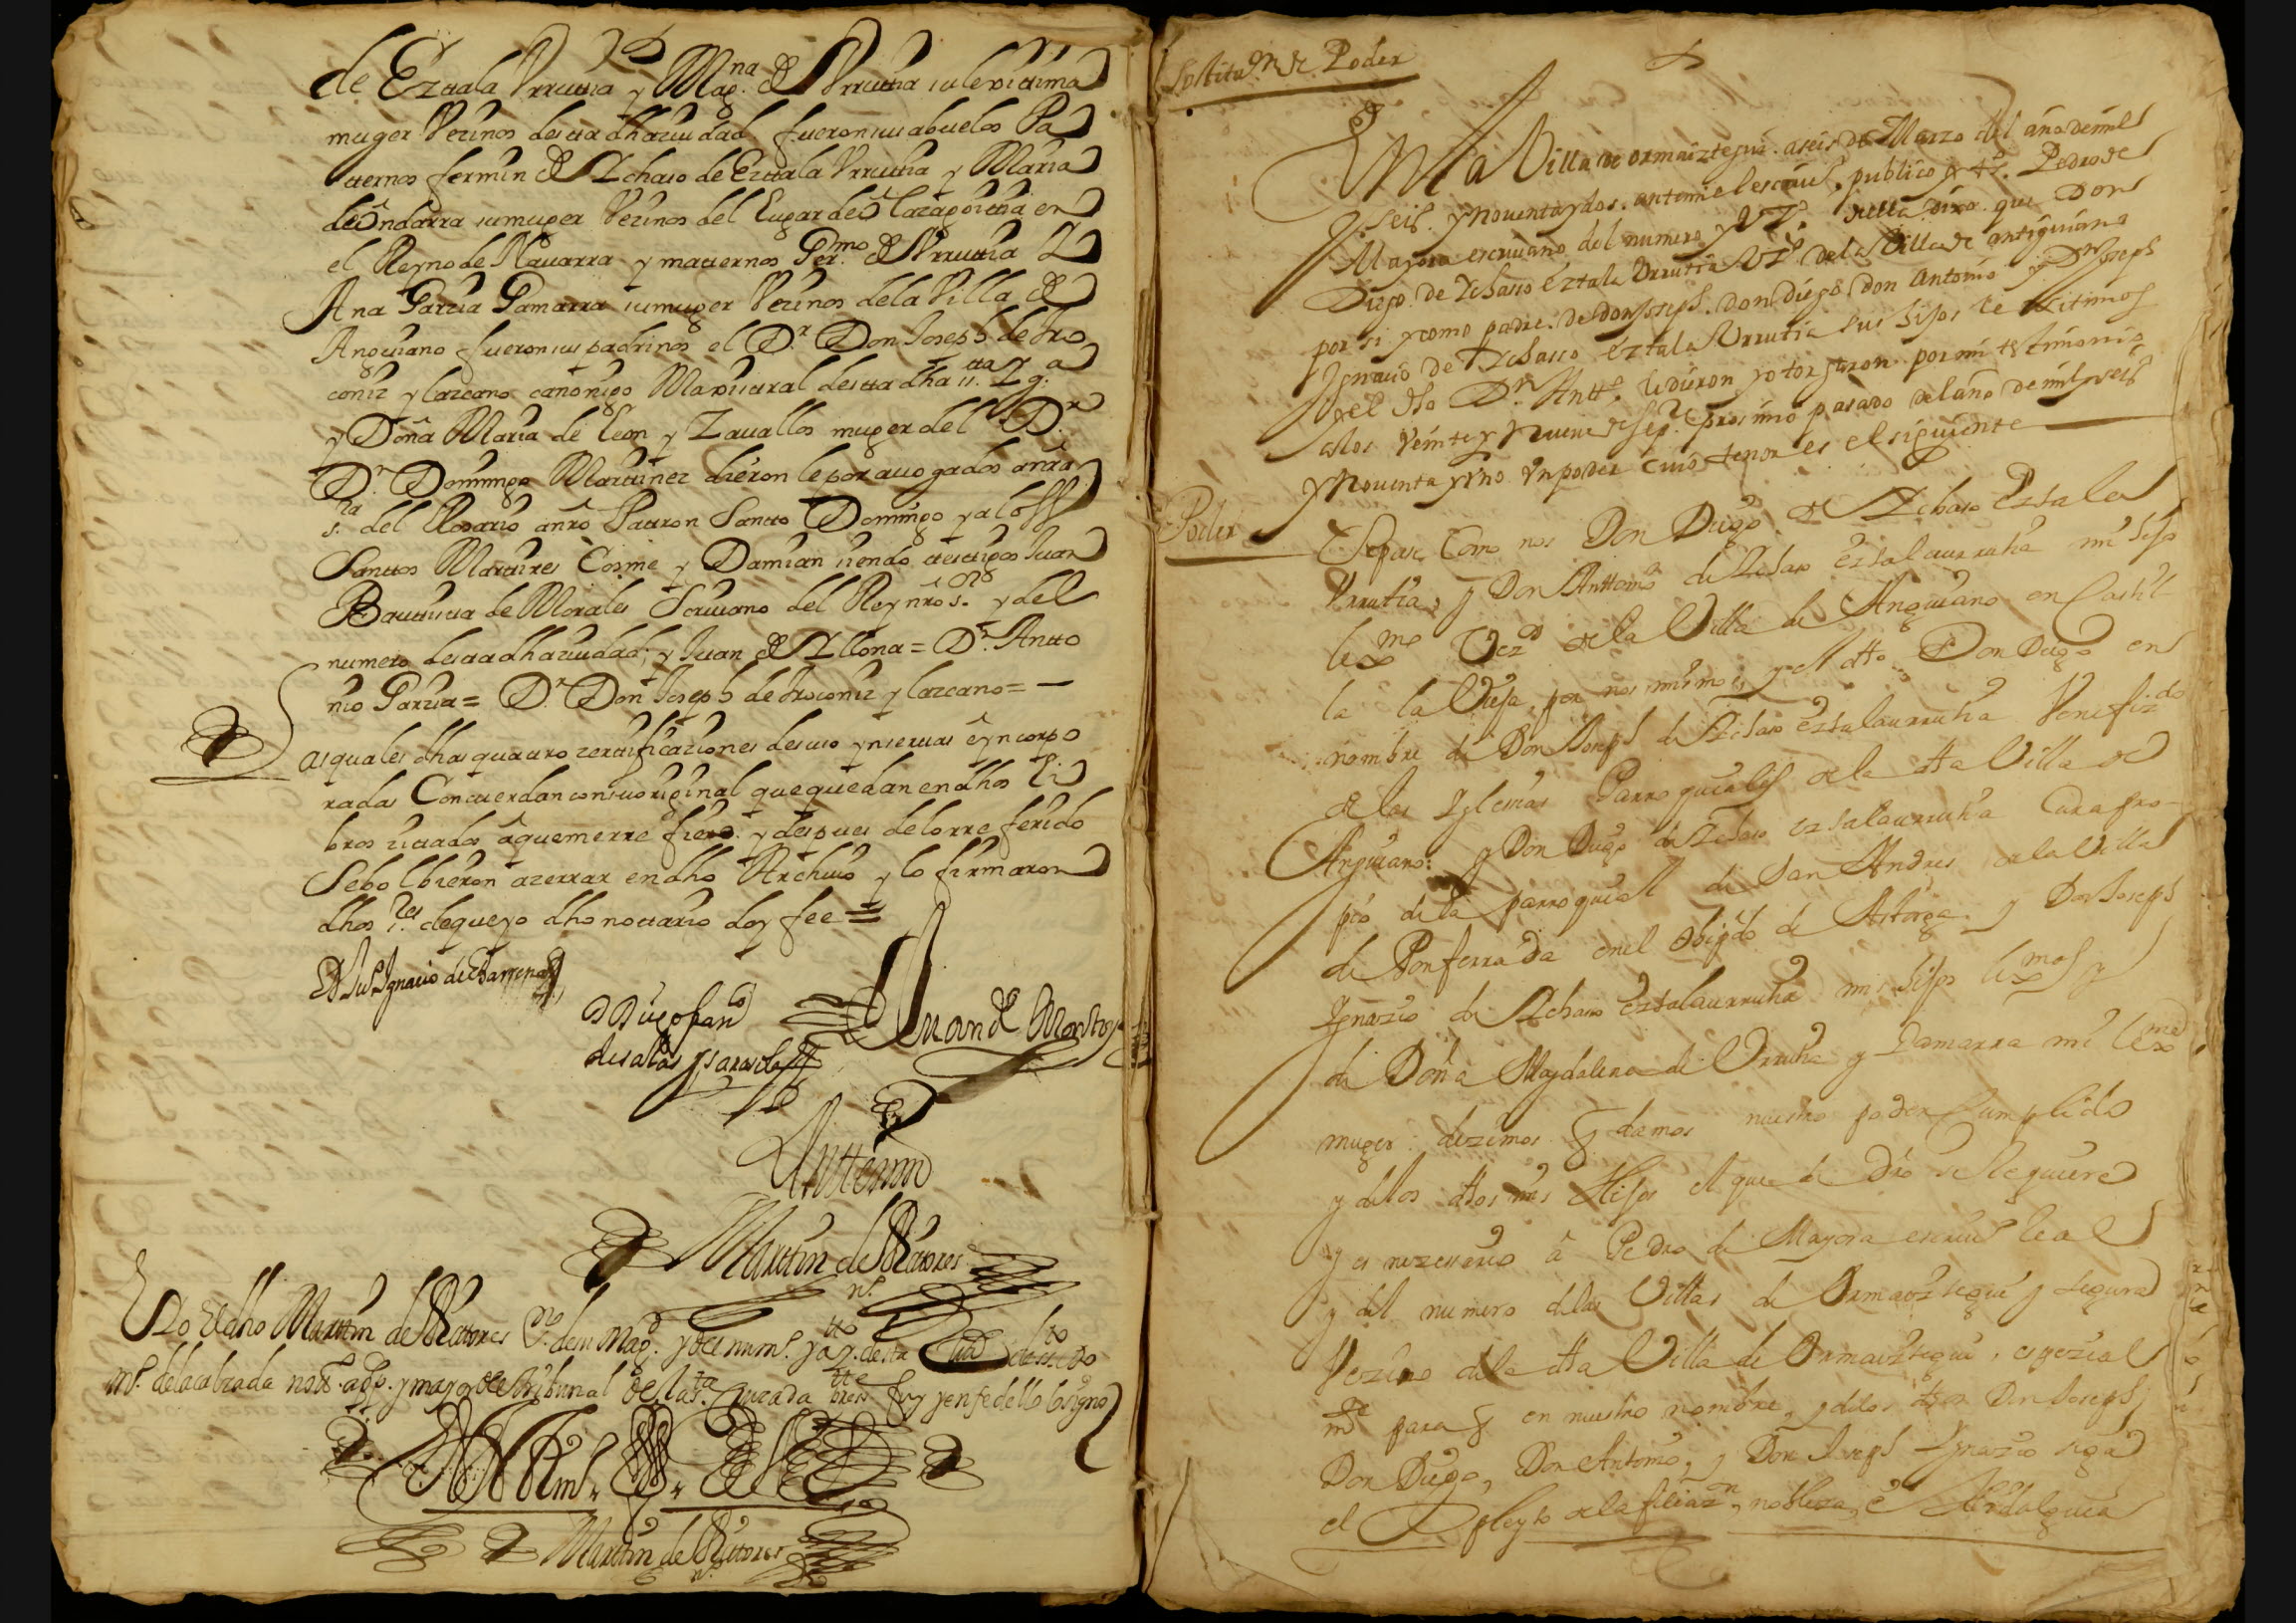 de Eztala Vrrutia y Mag.na de Vrrutia su lexitima
muger Vezinos desta dha ciudad fueron sus abuelos Pa
ternos fermin de Ychaso de Eztala Vrrutia y Maria
de Ondarra su muger Vezinos del Lugar de Olazagoitia en
el Reyno de Nauarra y maternos Ger.mo de Vrrutia Y
Ana Garzia Gamarra su muger Vezinos de la Villa de
Anguiano fueron sus padrinos el D.r Don Joseph de
y lazcano canonigo Maxistral desta dha s.ta Yg.a
y Doña Maria de leon y Zauallos muger del D.r
D.n Domingo Martinez dieronle por auogados a nra
s.ra del Rosario a nro Patron Santo Domingo y a los
Santos Martires Cosme y Damian siendo testigos Juan
Bautista de Morales Scriuano del Rey nro s.r y del
numero desta dha ciudad; y Juan de Yllona = D.r Anto
nio Garzia = D.r Don Joseph de y lazcano = —
as quales dhas quatro zertificaziones de suso ynsertas e yncorpo
radas Concuerdan con su original que quedan en dhos li
bros zitados a que me refiero. y despues de lo rreferido
Se bolbieron a zerrar en dho Archiuo y lo firmaron
dhos s.res de que yo dho notario doy fee =
Juan de Montoya
Ante mi
Martin de Ratores
n.o
Yo el dho Martin de Ratores s.no de su Mag.d y del num.o y ay.to desta Ciud de s.to Do
m.o de la calzada not.o ap.co y mayor del tribunal de la s.ta Cruzada pres.te fuy y en fe dello lo signo
Martin de Ratores
n.o
Sostitu.on de Poder
En la Villa de ormaiztegui. a seis de Marzo del año de mil
y seis.s y nouenta y dos. ante mi el escriu.o publico y t.os Pedro de
Mayora escriuano del numero y V.o della dixo. que Don
Diego. de Ychasso eztala Vrrutia V.o de la Villa de anguiano
por si y como padre. de don Joseph. don diego don Antonio y D.n Joseph
Ygnacio de Ychasso eztala Vrrutia sus hijos lexitimos
y el dho D.n Antt.o le dieron y otorgaron. por mi testimonio
a los veinte y nueue de sep.e proximo pasado del año de mil y seis
y nouenta y vno vn poder cuio tenor es el siguiente
Poder
Sepase Como nos Don Diego de Ychaso Eztala
Vrrutia, y Don Anttonio de Ychaso eztalaurrutia mi hijo
lex.mo Vez.os de la Villa de Anguiano en Casti-
la la Vieja, por nos mismos, y el dho Don Diego en
nombre de Don Joseph de Ychaso eztalaurrutia Venefiz.do
de las Yglesias Parroquiales de la dha Villa de
Anguiano: y Don Diego de Ychaso eztalaurrutia Cura pro-
pio de la parroquial de San Andres de la Villa
de Ponferrada en el obispdo de Astorga, y Don Joseph
Ygnazio de Ychaso eztalaurrutia mis hijos lex.mos y
de Doña Magdalena de Vrrutia y Gamarra mi lex.ma
muger: dezimos q damos nuestro poder Cumplido
y de los dhos mis Hijos el que de dro se Requiere
y es nezesario â Pedro de Mayora escriu.o Real
y del numero de las Villas de Ormaiztegui y segura
Vezino de la dha Villa de Ormaiztegui, espezial
m.te para q en nuestro nombre, y de los dhos Don Joseph,
Don Diego, Don Antonio, y Don Joseph Ygnazio siga
el pleyto de la filiaz.n, nobleza, e Hidalguia